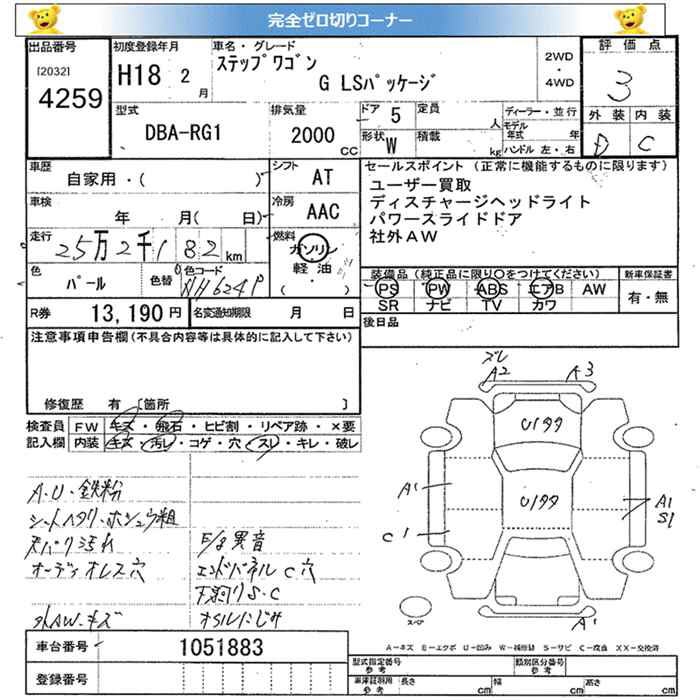 完全ゼロ切りコーナー
出品番号
[2032]
4259
初度登録年月
H18 2
月
車名・グレード
ステップワゴン
G LSパッケージ
2WD
・
4WD
評価点
3
外装 内装
D C
型式
DBA-RG1
排気量
2000
CC
ドア 5
定員
人
形状 W
積載
kg
ディーラー・並行
モデル年式 年
ハンドル 左・右
車歴
自家用・( )
シフト
AT
車検
年 月( 日)
冷房
AAC
走行
25万2千182km
燃料
ガソリン
軽油
( ・ )
色
パール
色替
色コード
NH624P
R券
13,190円
名変通知期限 月 日
セールスポイント (正常に機能するものに限ります)
ユーザー買取
ディスチャージヘッドライト
パワースライドドア
社外AW
装備品(純正品に限り○をつけてください)
PS PW ABS エアB AW
SR ナビ TV カワ
新車保証書
有・無
後日品
注意事項申告欄(不具合内容等は具体的に記入して下さい)
修復歴 有 [箇所 ]
検査員記入欄
FW キズ・飛石・ヒビ割・リペア跡・×要
内装 キズ・汚レ・コゲ・穴・スレ・キレ・破レ
A.U・鉄粉
シートヘタリ・ホシュウ粗
天バリ汚れ
オーディオレス穴
外AW.キズ
F/g異音
エンドパネルC穴
下廻りS・C
オイルにじみ
ズレ
A2
A3
U199
U199
A1
C1
A1
S1
A1
スペア
A-キズ E-エクボ U-凹み W-補修跡 S-サビ C-腐食 XX-交換済
車台番号
1051883
登録番号
型式指定番号
参考
類別区分番号
参考
車庫証明用
参考
長さ cm
幅 cm
高さ cm